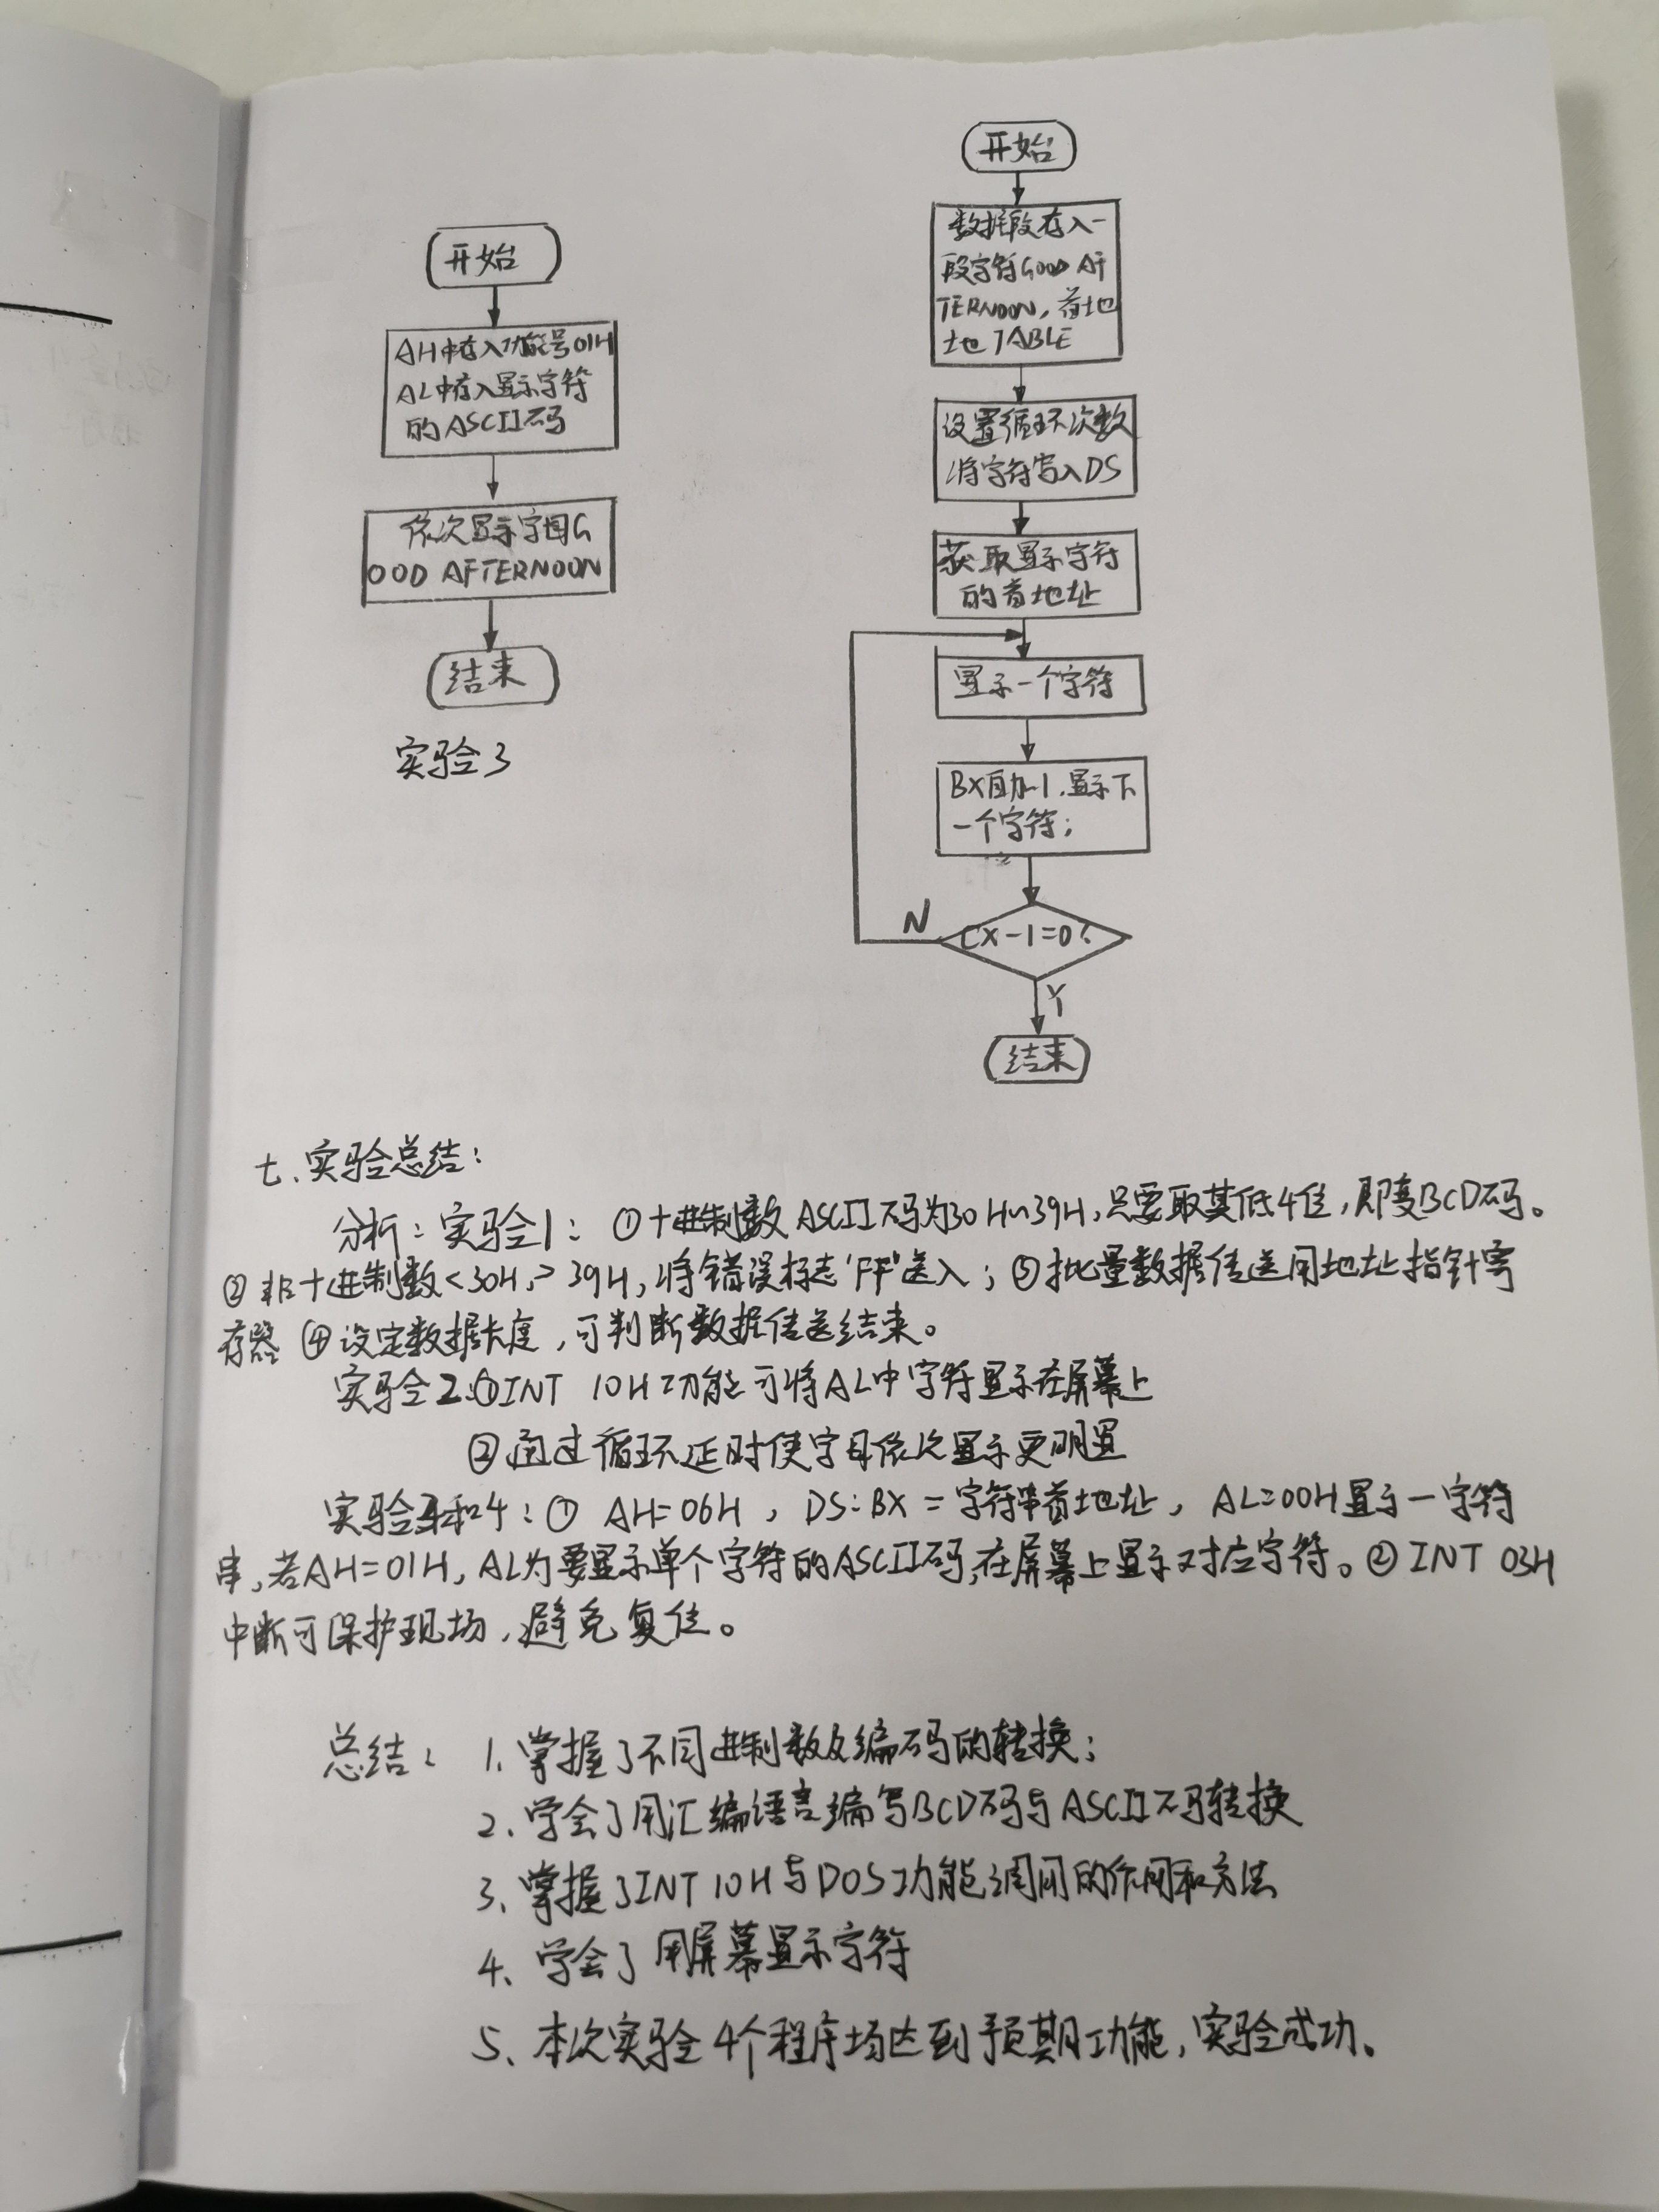 开始
AH中存入功能号01H
AL中存入显示字符
的ASCII码
依次显示字母G
OOD AFTERNOON
结束
实验3
开始
数据段存入一
段字符GOOD AF
TERNOON,首地
址TABLE
设置循环次数
将字符写入DS
获取显示字符
的首地址
显示一个字符
BX自加1,显示下
一个字符;
CX-1=0?
N
Y
结束
七、实验总结:
分析:实验1:①十进制数ASCII码为30H~39H,只要取其低4位,即变BCD码。
②非十进制数<30H,>39H,将错误标志'FF'送入;③批量数据传送用地址指针寄
存器 ④设定数据长度,可判断数据传送结束。
实验2:①INT 10H功能可将AL中字符显示在屏幕上
②通过循环延时使字母依次显示更明显
实验3和4:① AH=06H, DS:BX=字符串首地址, AL=00H显示一字符
串,若AH=01H,AL为要显示单个字符的ASCII码,在屏幕上显示对应字符。②INT 03H
中断可保护现场,避免复位。
总结: 1、掌握了不同进制数及编码的转换;
2、学会了用汇编语言编写BCD码与ASCII码转换
3、掌握了INT 10H与DOS功能调用的作用和方法
4、学会了用屏幕显示字符
5、本次实验4个程序均达到预期功能,实验成功。